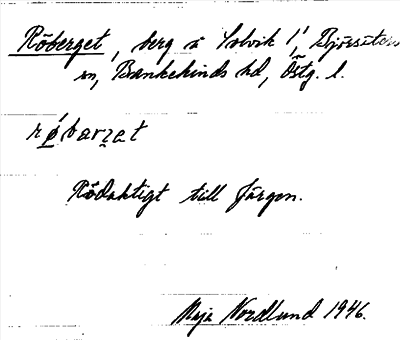 Röberget, berg å Solvik 1¹, Björsäters
sn, Bankekinds hd, Östg. l.
rǿbarʒet
Rödaktigt till färgen.
Maja Nordlund 1946.